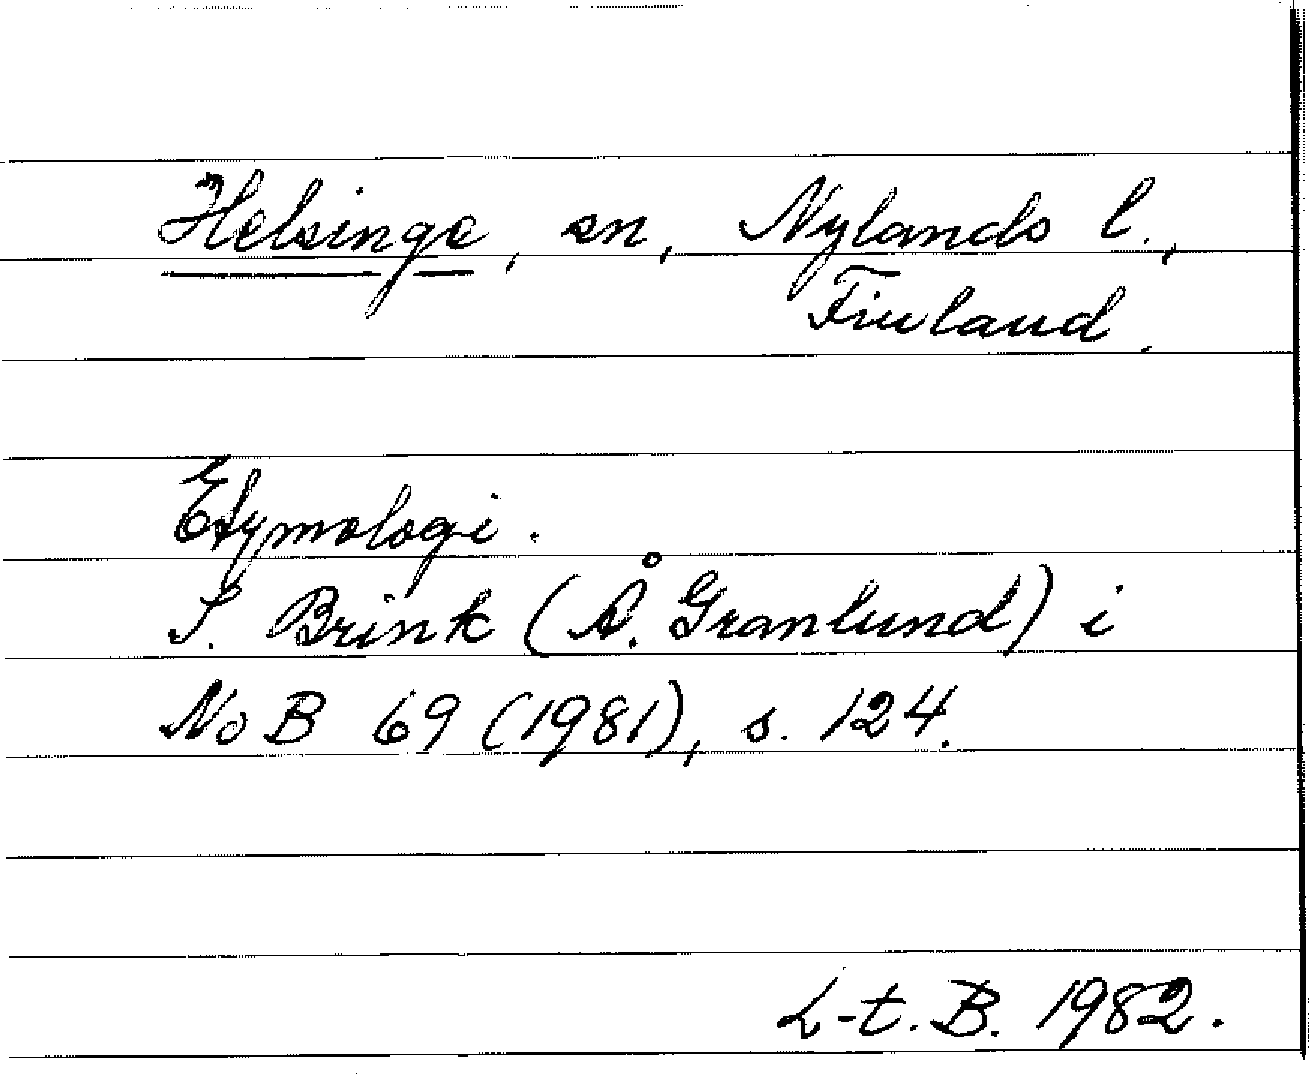 Helsinge, sn, Nylands l.,
Finland.
Etymologi.
S. Brink (Å. Granlund) i
NoB 69 (1981), s. 124.
L-t. B. 1982.